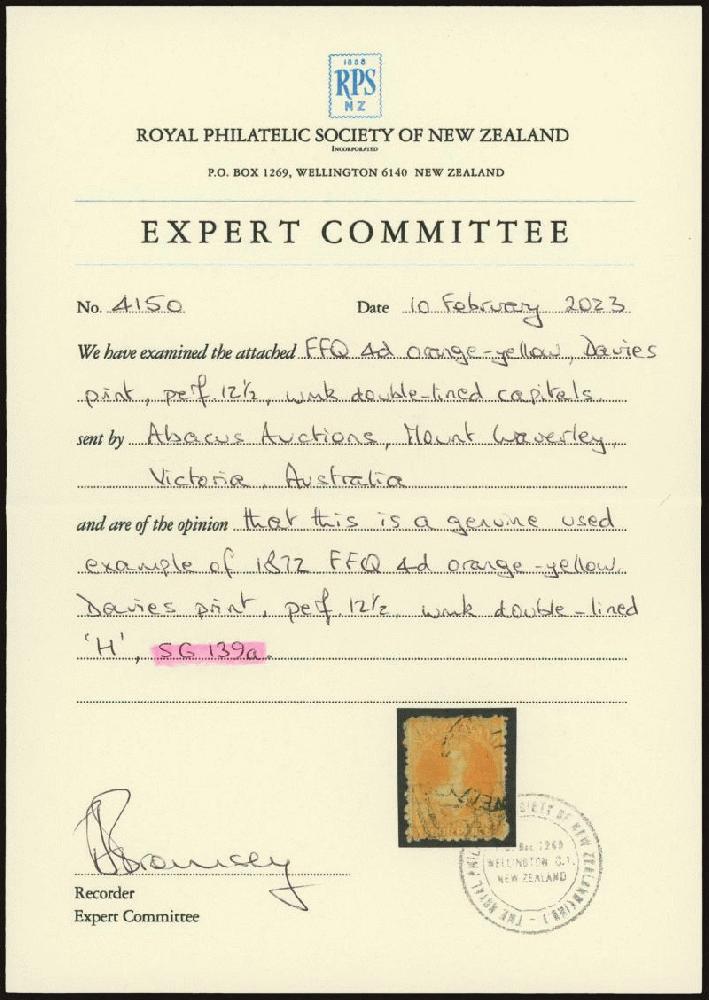 1888
RPS
NZ
ROYAL PHILATELIC SOCIETY OF NEW ZEALAND
INCORPORATED
P.O. BOX 1269, WELLINGTON 6140 NEW ZEALAND
EXPERT COMMITTEE
No. 4150 Date 10 February 2023
We have examined the attached FFQ 4d orange-yellow, Davies
print, perf 12½, wmk double-lined capitals
sent by Abacus Auctions, Mount Waverley,
Victoria, Australia
and are of the opinion that this is a genuine used
example of 1872 FFQ 4d orange-yellow
Davies print, perf. 12½ wmk double-lined
'H', SG 139a.
WELLINGTON C.1.
NEW ZEALAND
Recorder
Expert Committee